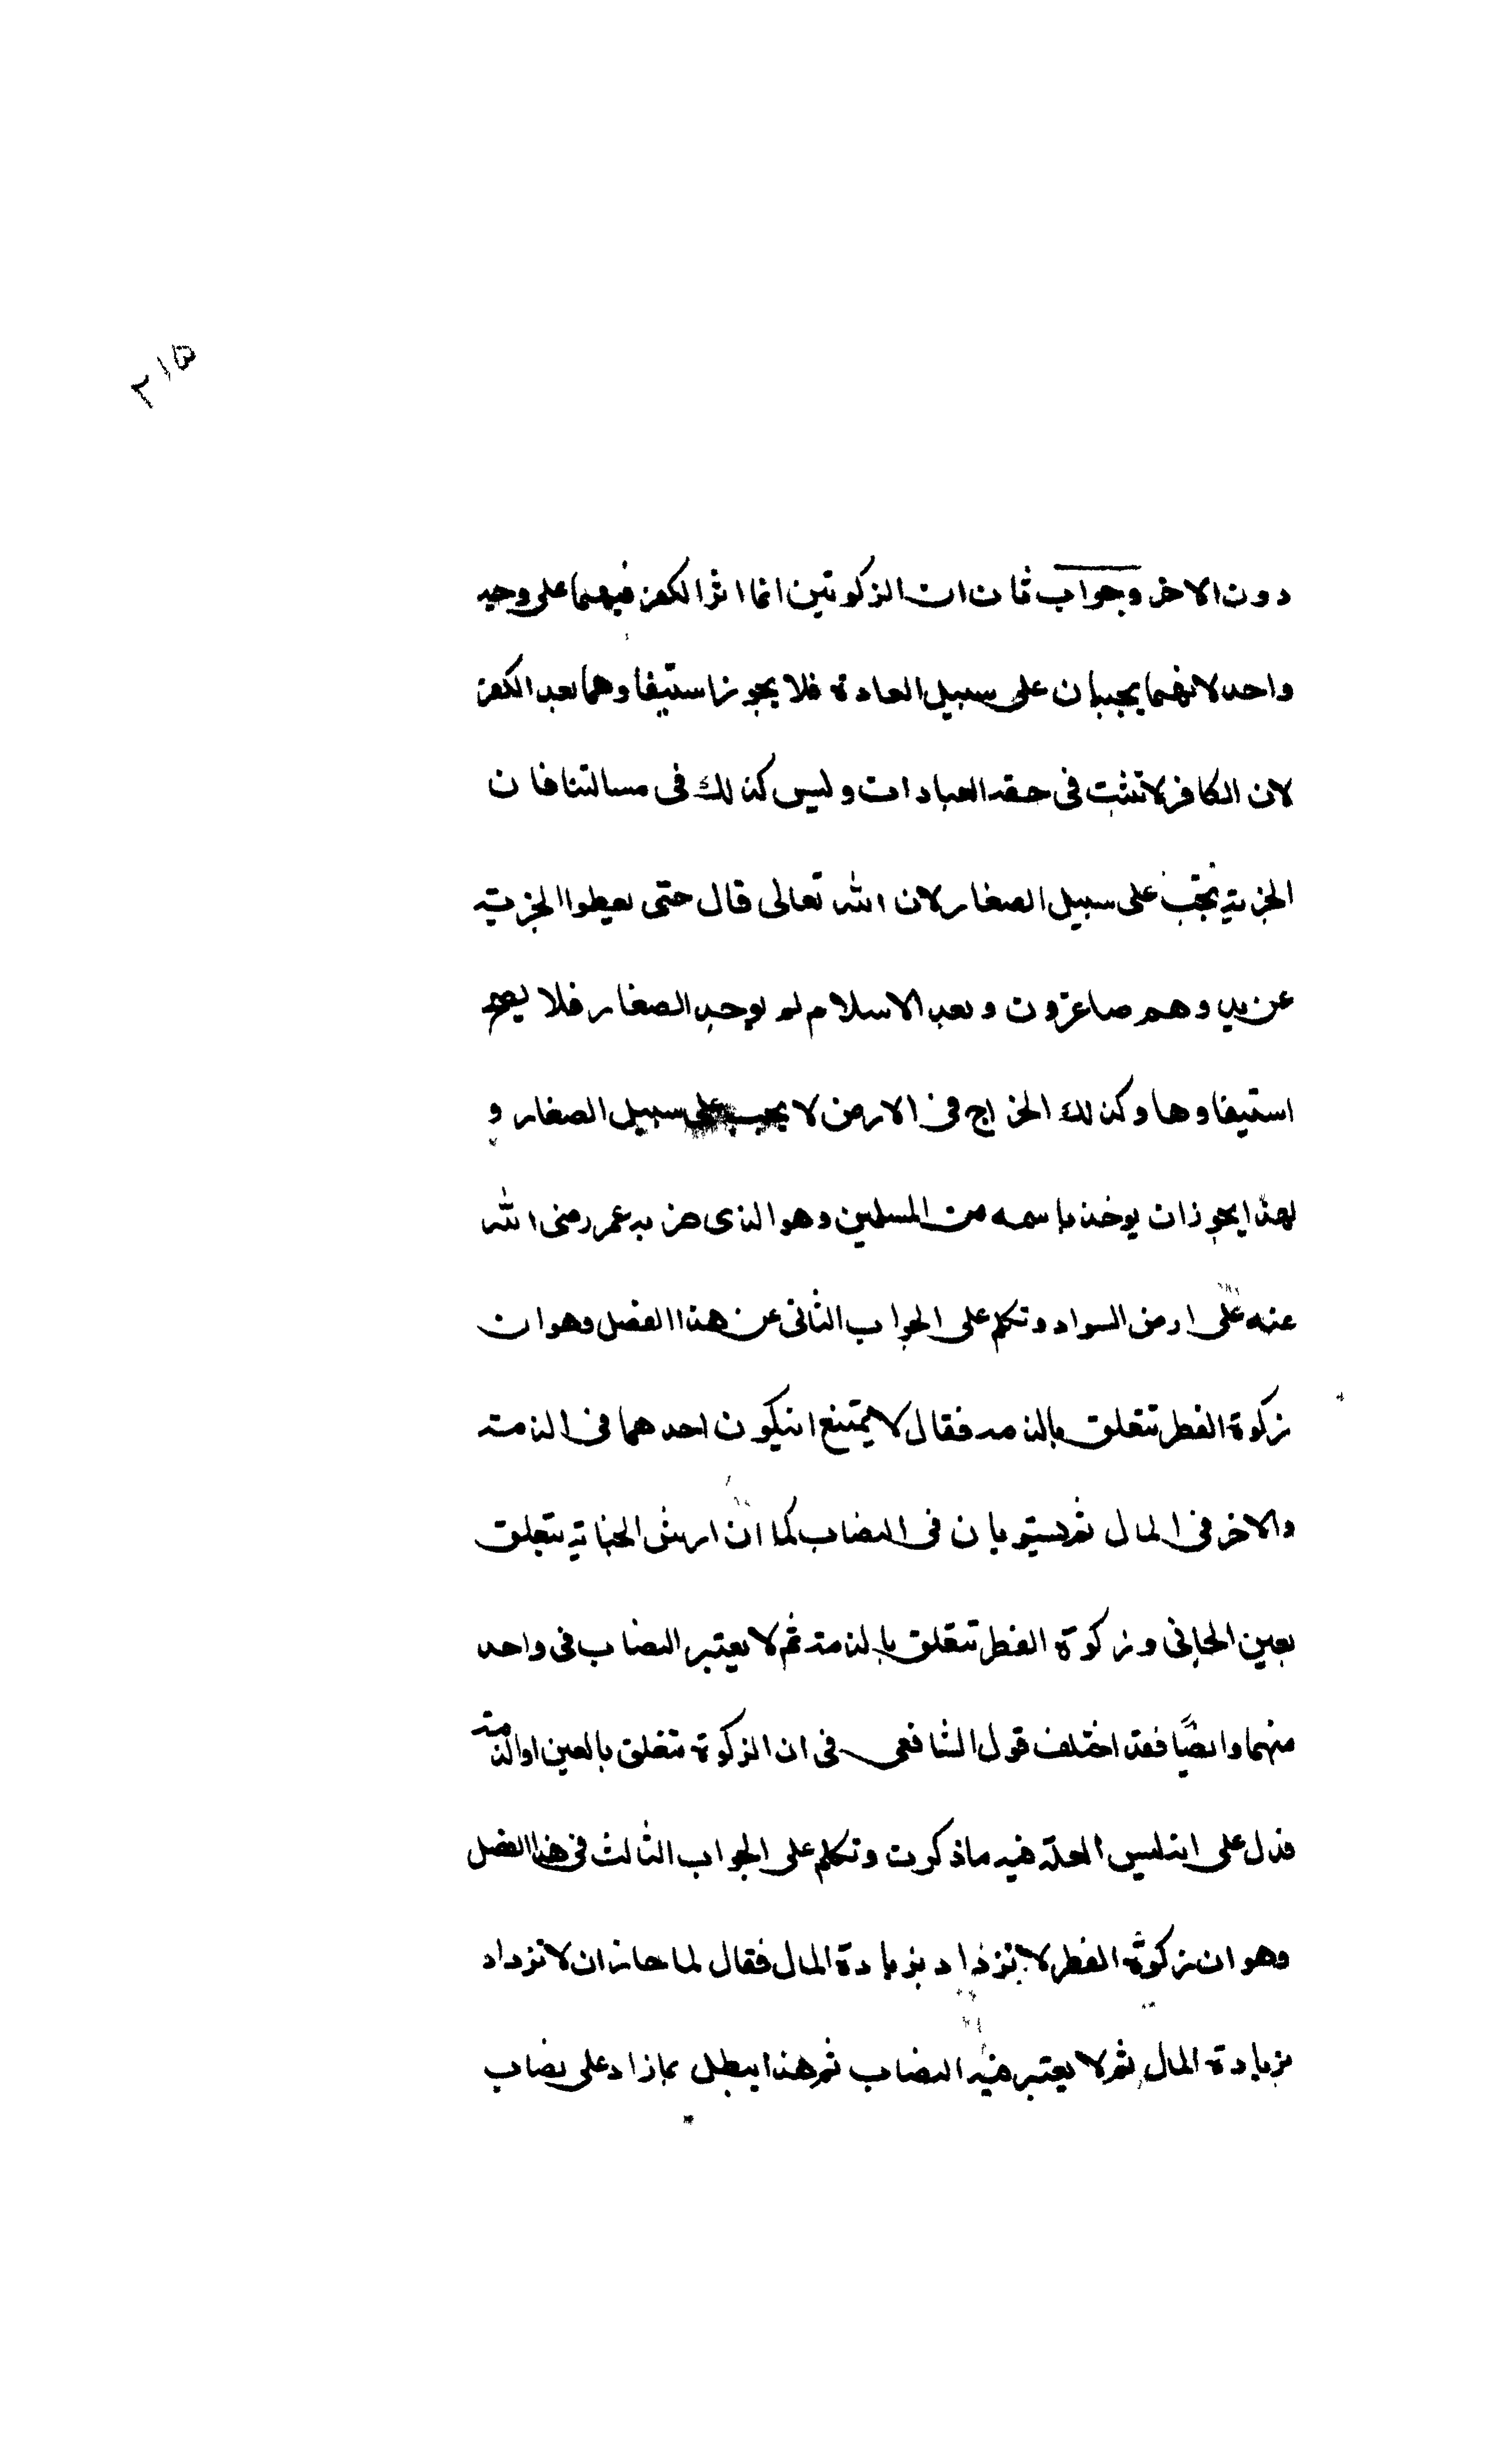 ٢١٥
دون الاخر وجواب ثان ان الزكوتين انما اثر الكفر فيهما على وجه
واحد لانهما يجبان على سبيل العادة فلا يجوز استيفاوهما بعد الكفر
لان الكافر لا تثبت فى حقه العبادات وليس كذلك فى مسالتنا فان
الجزية تجب على سبيل الصغار لان الله تعالى قال حتى يعطوا الجزية
عن يد وهم صاغرون وبعد الاسلام لم يوجد الصغار فلا يصح
استيفاوها وكذلك الخراج فى الارض لا يجب على سبيل الصغار و
لهذا يجوز ان يوخذ باسمه من المسلمين وهو الذى ضربه عمر رضى الله
عنه على ارض السواد وتكلم على الجواب الثانى عن هذا الفصل وهو ان
زكوة الفطر تتعلق بالذمه فقال لا يمتنع انيكون احدهما فى الذمة
والاخر فى المال ثم يستويان فى النصاب كما ان ارش الجناية يتعلق
بعين الجانى وزكوة الفطر تتعلق بالذمة ثم لا يعتبر النصاب فى واحد
منهما وايضًا فقد اختلف قول الشافعى فى ان الزكوة تتعلق بالعين او الذمة
فدل على انه ليس العلة فيه ما ذكرت وتكلم على الجواب الثالث فى هذا الفصل
وهو ان زكوة الفطر لا تزداد بزيادة المال فقال لما جاز ان لا تزداد
بزيادة المال ثم لا يعتبر فيه النصاب ثم هذا يبطل بما زاد على نصاب